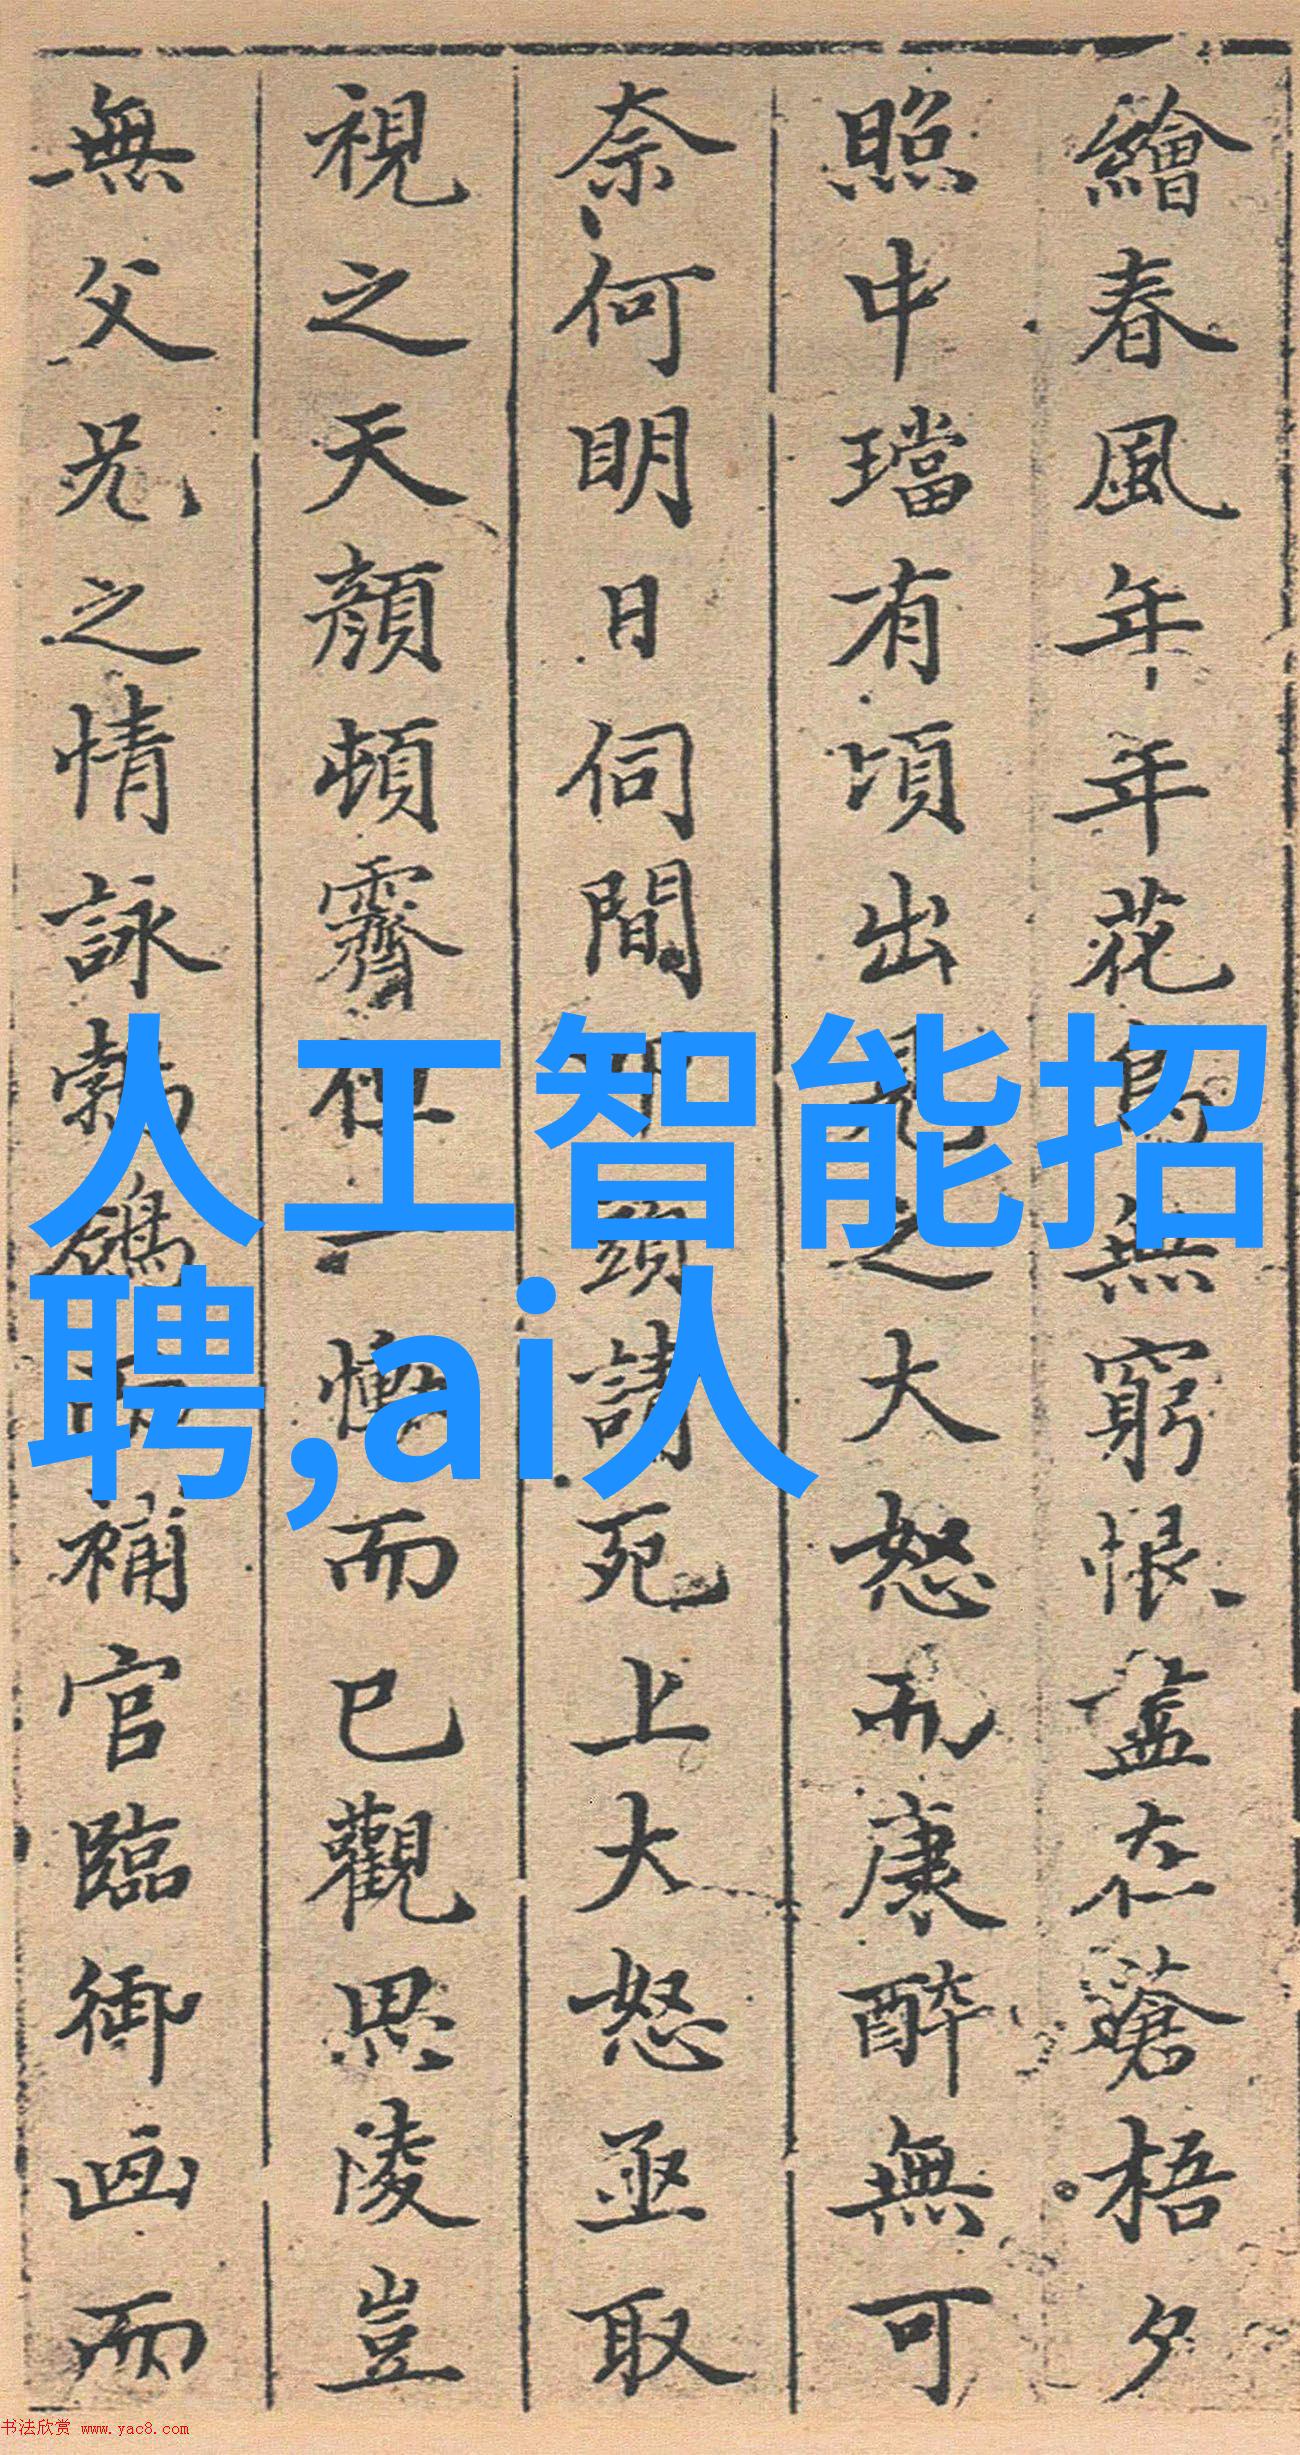 繪春風年年花鳥無窮恨盡在蒼梧夕
照中璫有頃出見之大怒而康醉無可
奈何明日伺間叩頭請死上大怒亟取
視之天顏頓霽但一慟而已觀思陵豈
無父兄之情詠勃鴿而補官臨御画而
人工智能招
聘,ai人
书法欣赏 www.yac8.com